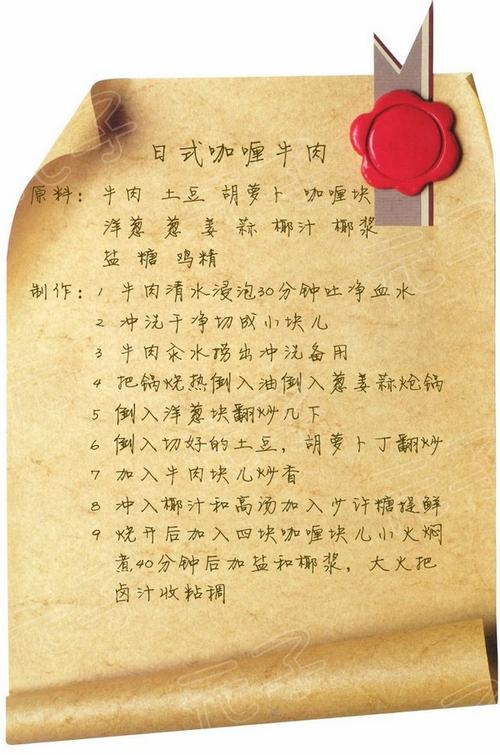 日式咖喱牛肉
原料：牛肉 土豆 胡萝卜 咖喱块
洋葱 葱 姜 蒜 椰汁 椰浆
盐 糖 鸡精
制作：1 牛肉清水浸泡30分钟吐净血水
2 冲洗干净切成小块儿
3 牛肉汆水捞出冲洗备用
4 把锅烧热倒入油倒入葱姜蒜炝锅
5 倒入洋葱块翻炒几下
6 倒入切好的土豆，胡萝卜丁翻炒
7 加入牛肉块儿炒香
8 冲入椰汁和高汤加入少许糖提鲜
9 烧开后加入四块咖喱块儿小火焖
煮40分钟后加盐和椰浆，大火把
卤汁收粘稠